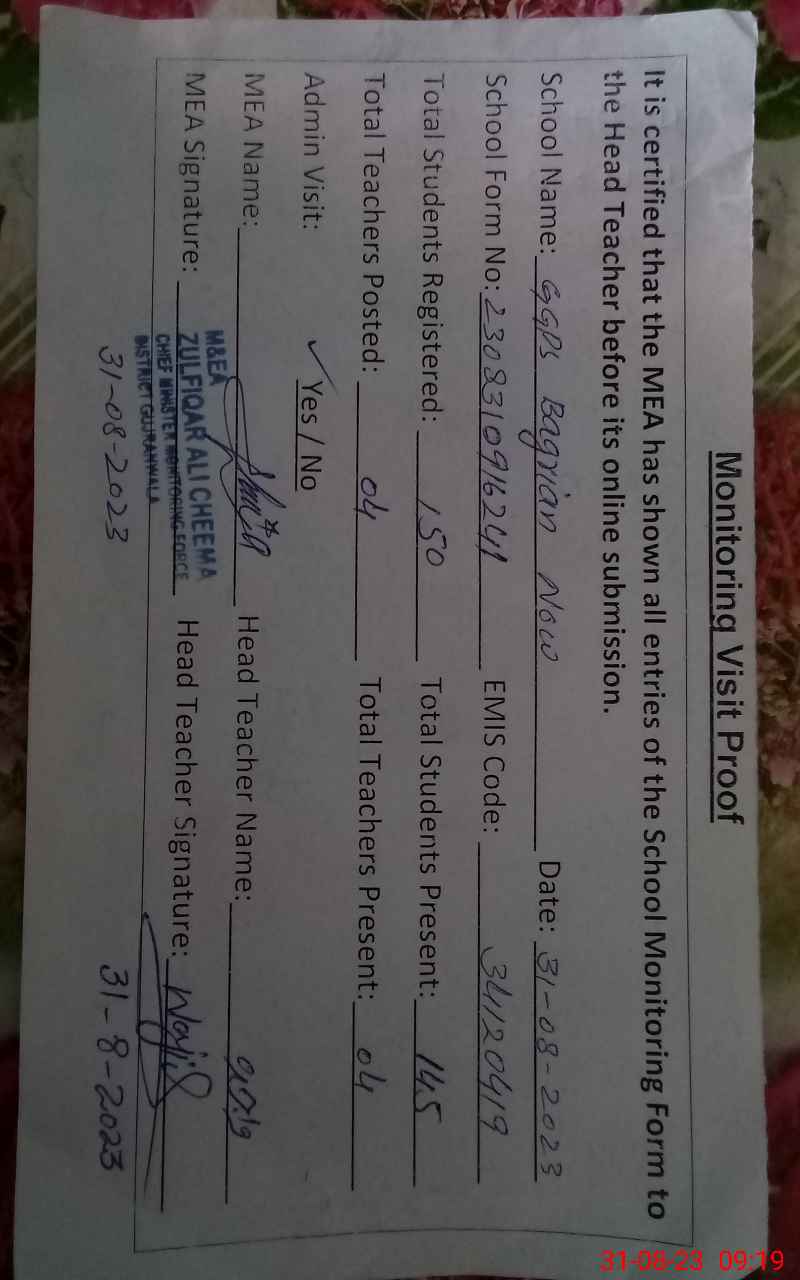 Monitoring Visit Proof
It is certified that the MEA has shown all entries of the School Monitoring Form to
the Head Teacher before its online submission.
School Name: GGPS Bagrian Now Date: 31-08-2023
School Form No: 2308310916241 EMIS Code: 34120419
Total Students Registered: 150 Total Students Present: 145
Total Teachers Posted: 04 Total Teachers Present: 04
Admin Visit: ✓ Yes / No
MEA Name: Head Teacher Name:
MEA Signature: Head Teacher Signature:
M&EA
ZULFIQAR ALI CHEEMA
CHIEF MINISTER MONITORING FORCE
DISTRICT GUJRANWALA
31-08-2023 31-8-2023
31-08-23 09:19